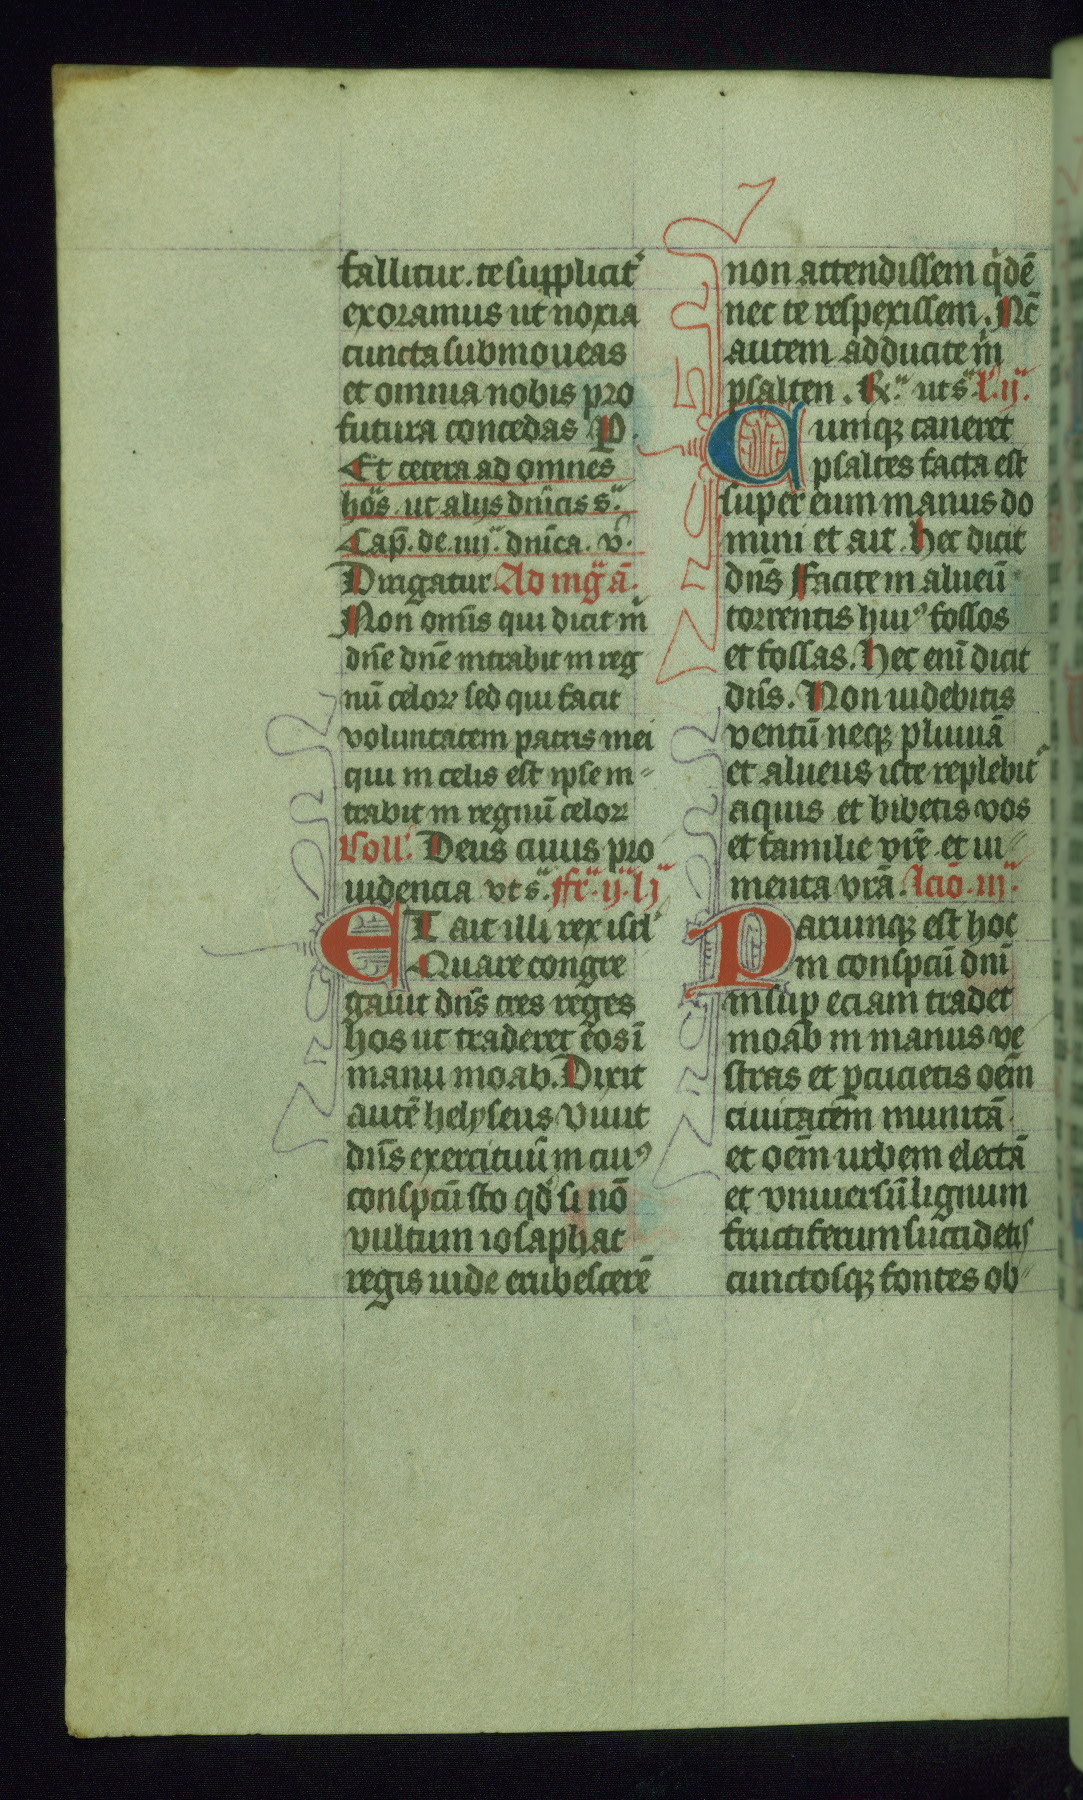 fallitur. te supplicit᷑
exoramus ut noxia
cuncta submoueas
et omnia nobis pro
futura concedas P.
Et cetera ad omnes
ho͛s ut alijs dn̄icis s.
Cap̄. de .iiij. dn̄ica. v̄.
Dirigatur Ad mḡā.
Non om̄is qui dicit m̄
dn̄e dn̄e intrabit in reg
nū celoꝝ sed qui facit
voluntatem patris mei
qui in celis est ipse in
trabit in regnū celoꝝ
Coll. Deus cuius pro
uidencia vt s. ffr̄. ij. l. j
ET ait illi rex isrl̄
Quare congre
gauit dn̄s tres reges
hos ut traderet eos ī
manu moab. Dixit
autē helyseus Viuit
dn̄s exercituū in cuiꝰ
conspc̄u sto qd̄ si nō
vultum iosaphat
regis iude erubescerē
non attendissem q'dē
nec te respexissem. Nc̄
autem adducite m̄
psalten. R. ut s. l. ij.
Cunqꝫ caneret
psaltes facta est
super eum manus do
mini et ait. Hec dicit
dn̄s Facite in alueū
torrentis huiꝰ fossos
et fossas. Hec enī dicit
dn̄s. Non uidebitis
ventū neqꝫ pluuiā
et alueus iste replebit᷑
aquis et bibetis vos
et familie vr̄e et iu
menta vr̄a. lciō. iij.
Parumqꝫ est hoc
in conspc̄u dn̄i
insup eciam tradet
moab in manus ve
stras et ꝑcucietis oēm
ciuitatem munitā
et oēm urbem electā
et vniuersū lignum
fructiferum succidetis
cunctosqꝫ fontes ob